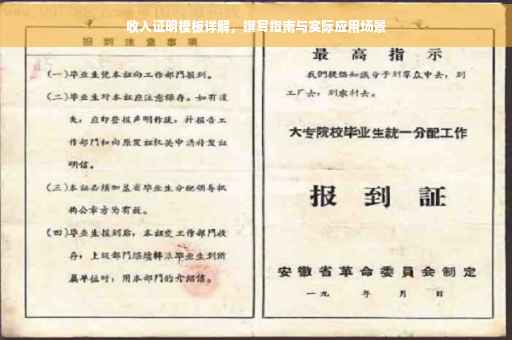 收入证明模板详解，撰写指南与实际应用场景
报到注意事项
(一)毕业生凭本证向工作部门报到。
(二)毕业生对本证应注意保存。如有遗
失，应即登报声明作废，并报告工
作部门和向原发证机关申请补发证
明信。
(三)本证必须加盖省毕业生分配领导机
构公章方为有效。
(四)毕业生报到后，本证交工作部门收
存；上级部门继续转派毕业生到所
属单位时，用本部门的介绍信。
最高指示
我们提倡知识分子到群众中去，到
工厂去，到农村去。
大专院校毕业生統一分配工作
报到証
安徽省革命委員会制定
一九 年 月 日